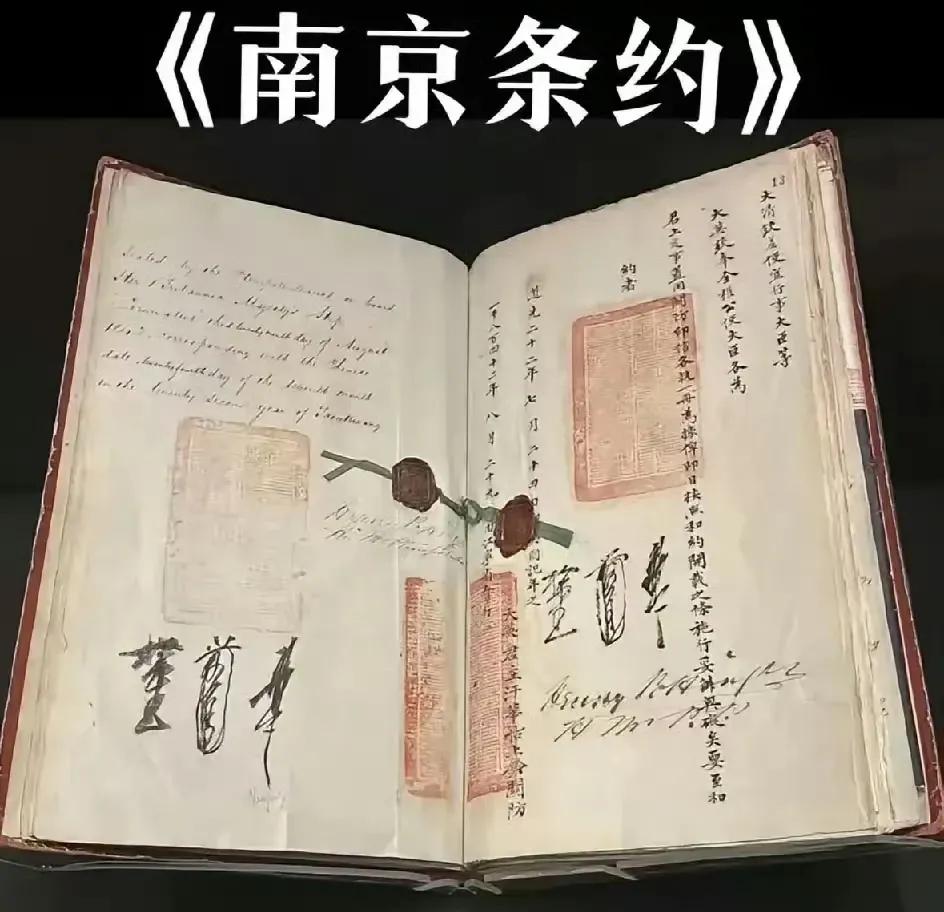 《南京条约》
Sealed by the Plenipotentiaries on board
Her Britannic Majesty's Ship
"Cornwallis" this twenty ninth day of August
1842, corresponding with the Chinese
date, twenty fourth day of the seventh month
in the twenty second year of Taoukwang
13
大清欽差便宜行事大臣等
大英欽奉全權公使大臣各為
君上定事蓋用關防印信各執一冊為據俾即日按照和約開載之條施行妥辦無礙矣要至和
約者
道光二十二年七月二十四日即英國記年之
一千八百四十二年八月二十九日
大英君主汗華
關防
Henry Pottinger